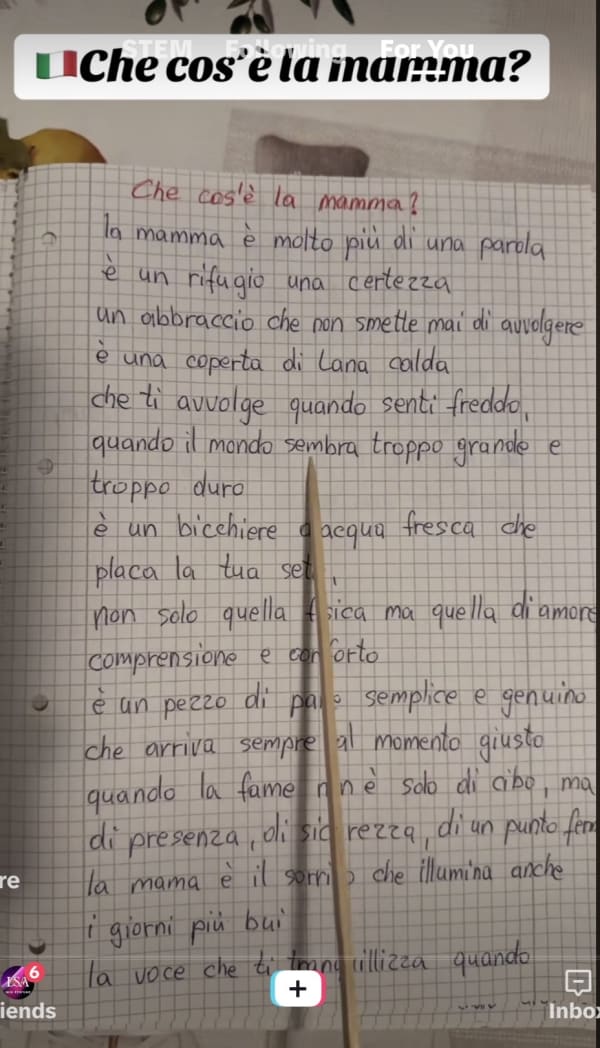 STEM Following For You
Che cos'è la mamma?
Che cos'è la mamma?
la mamma è molto più di una parola
è un rifugio una certezza
un abbraccio che non smette mai di avvolgere
è una coperta di lana calda
che ti avvolge quando senti freddo,
quando il mondo sembra troppo grande e
troppo duro
è un bicchiere acqua fresca che
placa la tua
non solo quella ma quella di amore
comprensione e
è un pezzo di semplice e genuino
che arriva sempre al momento giusto
quando la fame è solo di cibo, ma
di presenza, di di un punto
la mama è il che illumina anche
i giorni più bui
la voce che ti quando
re
LSA
6
iends
+
Inbox